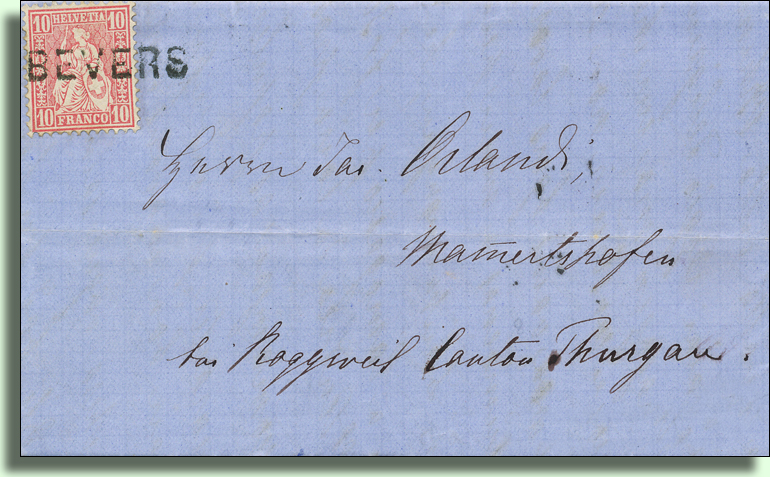 10 HELVETIA 10
BEVERS
10 FRANCO 10
Herrn Jac. Orlandi,
Mam̅ertshofen
bei Roggweil Canton Thurgau.